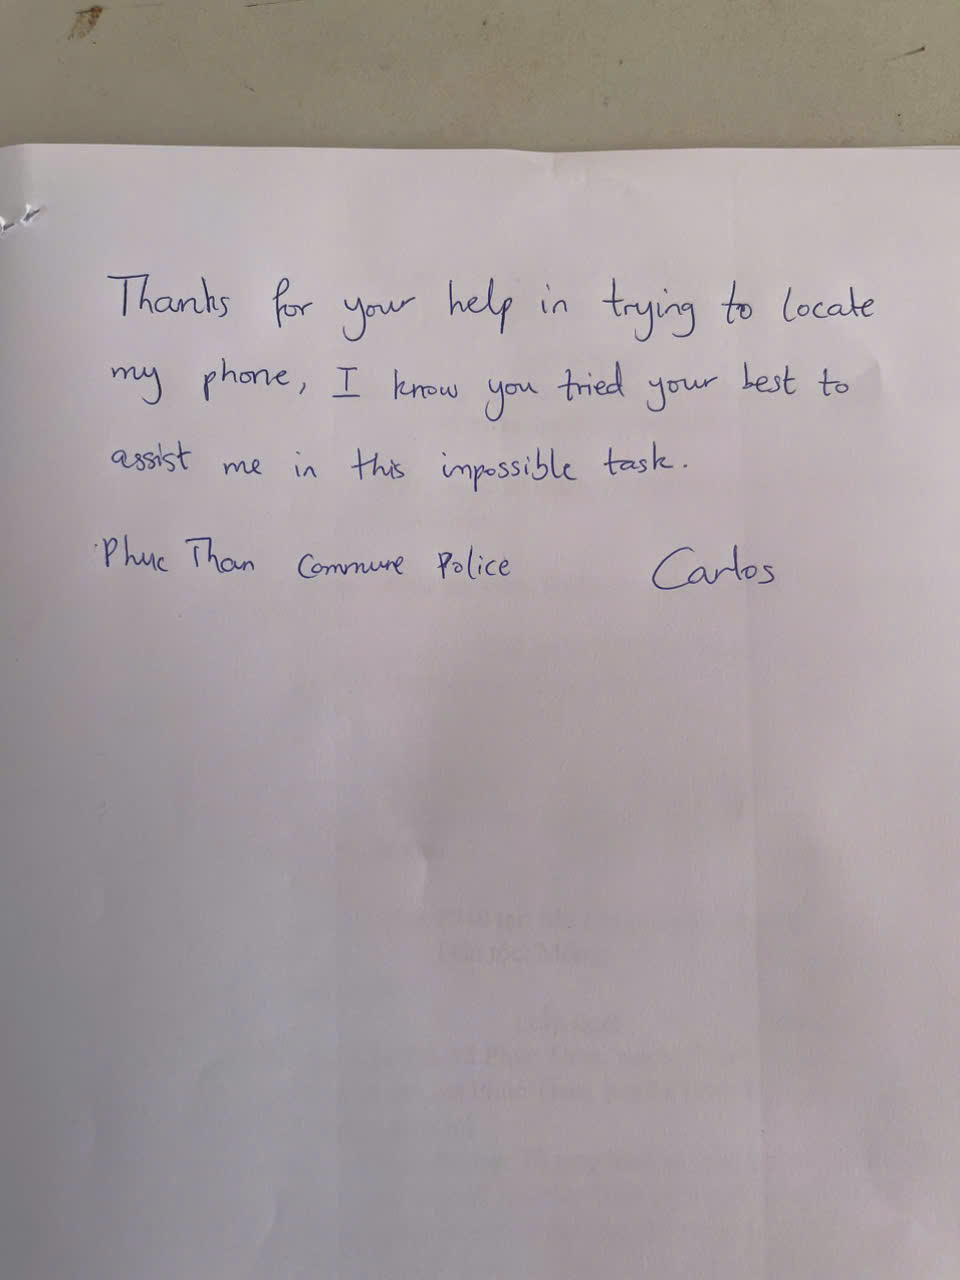 Thanks for your help in trying to locate
my phone, I know you tried your best to
assist me in this impossible task.
Phuc Than Commune Police Carlos